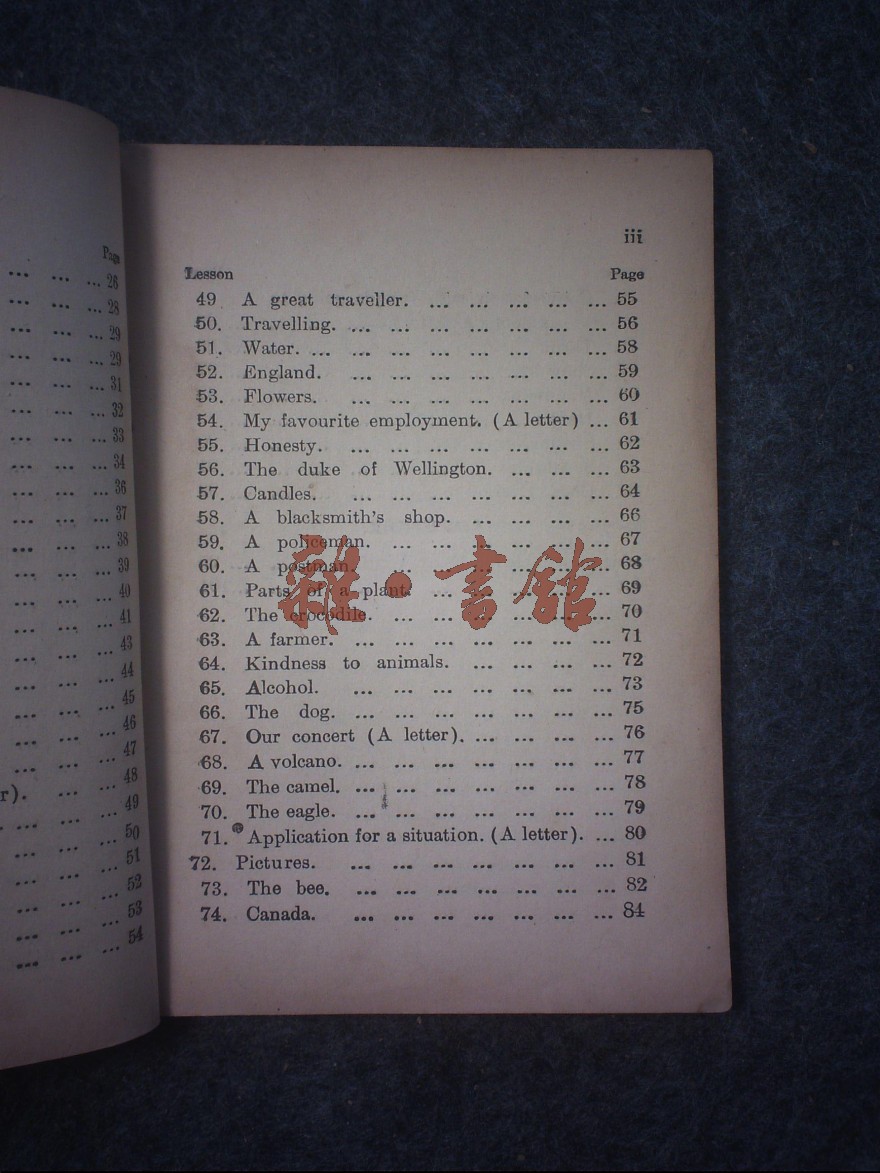 Page
... ... ... 26
... ... ... 28
... ... ... 29
... ... ... 29
... ... ... 31
... ... ... 32
... ... ... 33
... ... ... 34
... ... ... 36
... ... ... 37
... ... ... 38
... ... ... 39
... ... ... 40
... ... ... 41
... ... ... 43
... ... ... 44
... ... ... 45
... ... ... 46
... ... ... 47
r). ... ... 48
... ... ... 49
... ... ... 50
... ... ... 51
... ... ... 52
... ... ... 53
... ... ... 54
iii
Lesson Page
49 A great traveller. ... ... ... ... ... 55
50. Travelling. ... ... ... ... ... ... ... 56
51. Water. ... ... ... ... ... ... ... ... 58
52. England. ... ... ... ... ... ... ... 59
53. Flowers. ... ... ... ... ... ... ... 60
54. My favourite employment. (A letter) ... 61
55. Honesty. ... ... ... ... ... ... ... 62
56. The duke of Wellington. ... ... ... 63
57. Candles. ... ... ... ... ... ... ... 64
58. A blacksmith's shop. ... ... ... ... 66
59. A policeman. ... ... ... ... ... ... 67
60. A postman. ... ... ... ... ... ... 68
61. Parts of a plant. ... ... ... ... ... 69
62. The crocodile. ... ... ... ... ... ... 70
63. A farmer. ... ... ... ... ... ... ... 71
64. Kindness to animals. ... ... ... ... 72
65. Alcohol. ... ... ... ... ... ... ... 73
66. The dog. ... ... ... ... ... ... ... 75
67. Our concert (A letter). ... ... ... ... 76
68. A volcano. ... ... ... ... ... ... ... 77
69. The camel. ... ... ... ... ... ... ... 78
70. The eagle. ... ... ... ... ... ... ... 79
71. Application for a situation. (A letter). ... 80
72. Pictures. ... ... ... ... ... ... ... 81
73. The bee. ... ... ... ... ... ... ... 82
74. Canada. ... ... ... ... ... ... ... 84
雜·書館